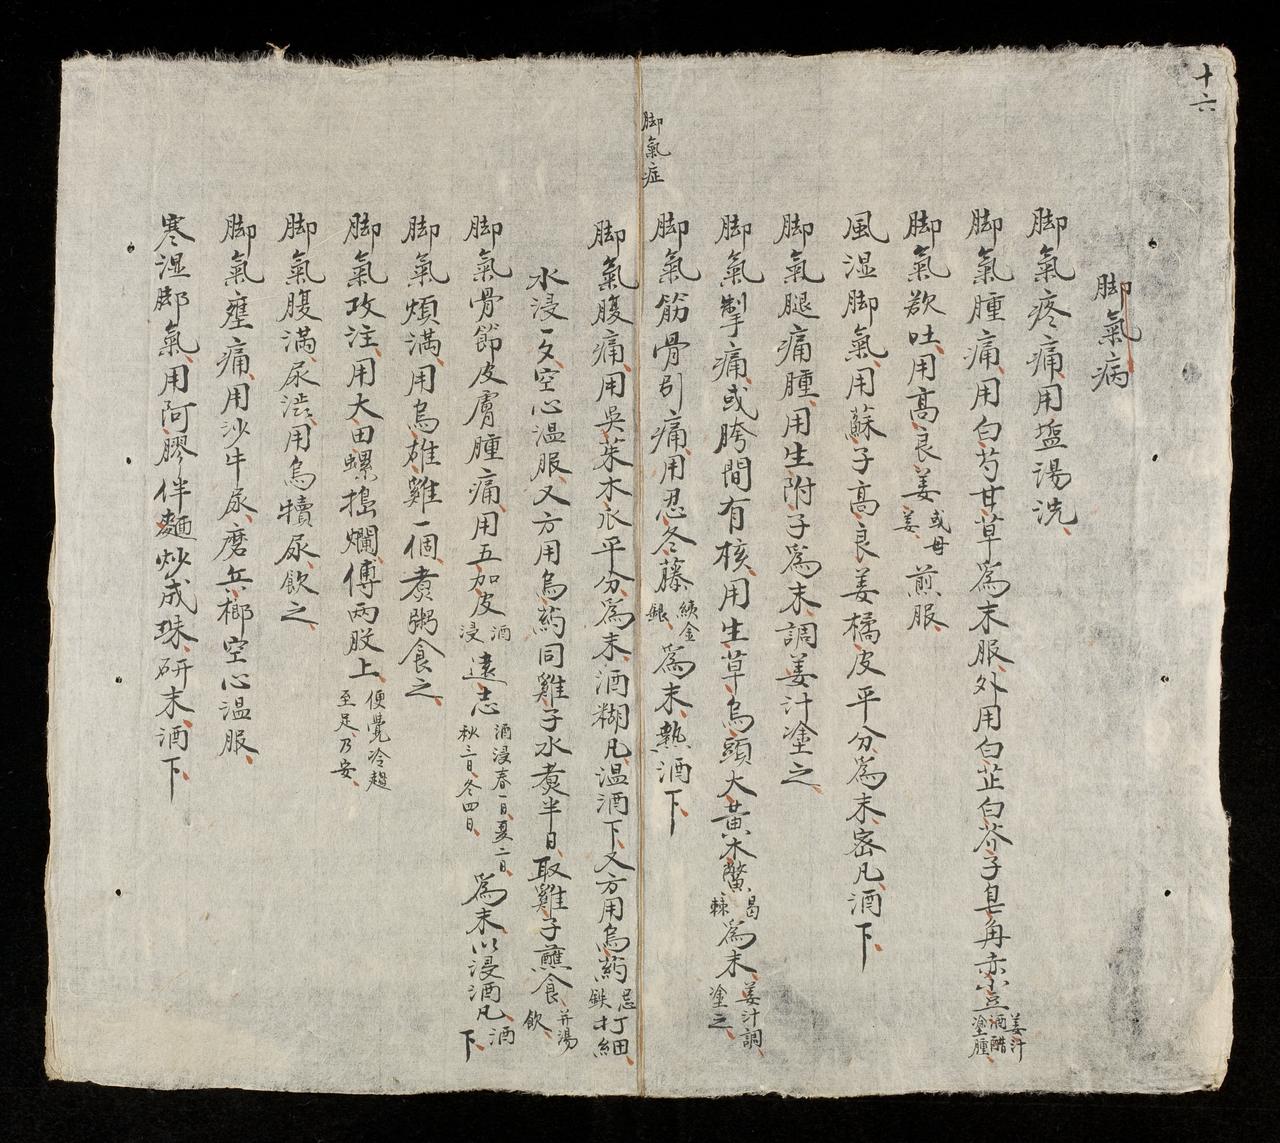 十六
脚氣病
脚氣疼痛用塩湯洗
脚氣腫痛用白芍甘草為末服外用白芷白芥子皂角赤小豆姜汁酒醋塗腫
脚氣欲吐用高良姜或母姜煎服
風湿脚氣用蘇子高良姜橘皮平分為末密凡酒下
脚氣腿痛腫用生附子為末調姜汁塗之
脚氣掣痛或胯間有核用生草烏頭大黃木鱉為末姜汁調塗之
脚氣症
脚氣筋骨引痛用忍冬藤銀為末熱酒下
脚氣腹痛用吳茱木瓜平分為末酒糊凡温酒下又方用烏葯忌鉄打細
水浸一夕空心温服又方用烏葯同雞子水煮半日取雞子蘸食并湯飲
脚氣骨節皮膚腫痛用五加皮酒浸遠志酒浸春一日夏二日秋三日冬四日為末以浸酒凡酒下
脚氣煩満用烏雄雞一個煮粥食之
脚氣攻注用大田螺搗爛傅兩股上便覺冷趨至足乃安
脚氣腹満尿渋用烏犢尿飲之
脚氣壅痛用沙牛尿磨兵榔空心温服
寒湿脚氣用阿膠伴麵炒成珠研末酒下